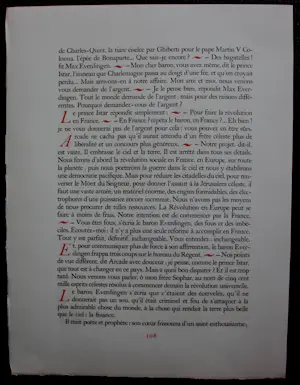 de Charles-Quint, la tiare ciselée par Ghiberti pour le pape Martin V Co-
lonna, l'épée de Bonaparte... Que sais-je encore ? — Des bagatelles !
fit Max Everdingen. — Mon cher baron, vous avez même, dit le prince
Istar, l'anneau que Charlemagne passa au doigt d'une fée, et qu'on croyait
perdu... Mais arrivons-en à notre affaire. Mon ami et moi, nous venons
vous demander de l'argent. — Je le pense bien, répondit Max Ever-
dingen. Tout le monde demande de l'argent ; mais pour des raisons diffé-
rentes. Pourquoi demandez-vous de l'argent ?
Le prince Istar répondit simplement : — Pour faire la révolution
en France. — En France ! répéta le baron, en France !... Eh bien !
je ne vous donnerai pas de l'argent pour cela ; vous pouvez en être sûrs.
Arcade ne cacha pas qu'il aurait attendu d'un frère céleste plus de
libéralité et un concours plus généreux. — Notre projet, dit-il,
est vaste. Il embrasse le ciel et la terre. Il est arrêté dans tous ses détails.
Nous ferons d'abord la révolution sociale en France, en Europe, sur toute
la planète ; puis nous porterons la guerre dans le ciel et nous y établirons
une démocratie pacifique. Mais pour réduire les citadelles du ciel, pour ren-
verser le Mont du Seigneur, pour donner l'assaut à la Jérusalem céleste, il
faut une vaste armée, un matériel énorme, des engins formidables, des élec-
trophores d'une puissance encore inconnue. Nous n'avons pas les moyens
de nous procurer de telles ressources. La Révolution en Europe peut se
faire à moins de frais. Notre intention est de commencer par la France.
— Vous êtes fous, s'écria le baron Everdingen, des fous et des imbé-
ciles. Écoutez-moi : il n'y a plus une seule réforme à accomplir en France.
Tout y est parfait, définitif, inchangeable. Vous entendez : inchangeable.
Et, pour communiquer plus de force à son affirmation, le baron Ever-
dingen frappa trois coups sur le bureau du Régent. — Nos points
de vue diffèrent, dit Arcade avec douceur ; je pense, comme le prince Istar,
que tout est à changer en ce pays. Mais à quoi bon disputer ? Et il est trop
tard. Nous venons vous parler, ô mon frère Sophar, au nom de cinq cent
mille esprits célestes résolus à commencer demain la révolution universelle.
Le baron Everdingen s'écria que c'étaient des écervelés, qu'il ne
donnerait pas un sou, qu'il était criminel et fou de s'attaquer à la
plus admirable chose du monde, à la chose qui rendait la terre plus belle
que le ciel : la finance.
Il était poète et prophète : son cœur frissonna d'un saint enthousiasme,
108